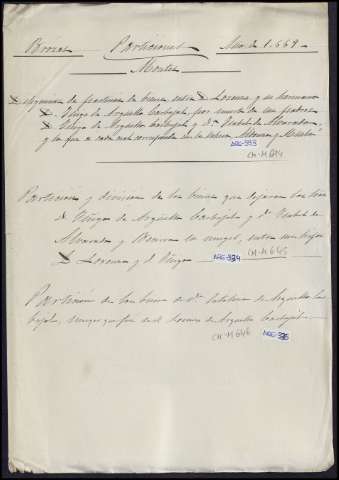 Brozas Particiones Año de 1.669
Montes
de particion de bienes entre D. Lorenzo y su hermano
D. Diego de Arguello Carbajal, por muerte de sus padres
D. Diego de Arguello Carbajal y D.ª Isabel de Alvarado,
y la que a cada uno corresponde en la
ARG-333
CM-M 644
Particion y division de los bienes que dejaron los Sres
D. Diego de Arguello Carbajal y D.ª Isabel de
Alvarado y su muger, entre sus hijos
D. Lorenzo y D. Diego
ARG-334 CM-M 645
Particion de los bienes de D.ª Catalina de Arguello Car
bajal, muger que fue de D. Lorenzo de Arguello Carbajal
CM-M 646 ARG-335